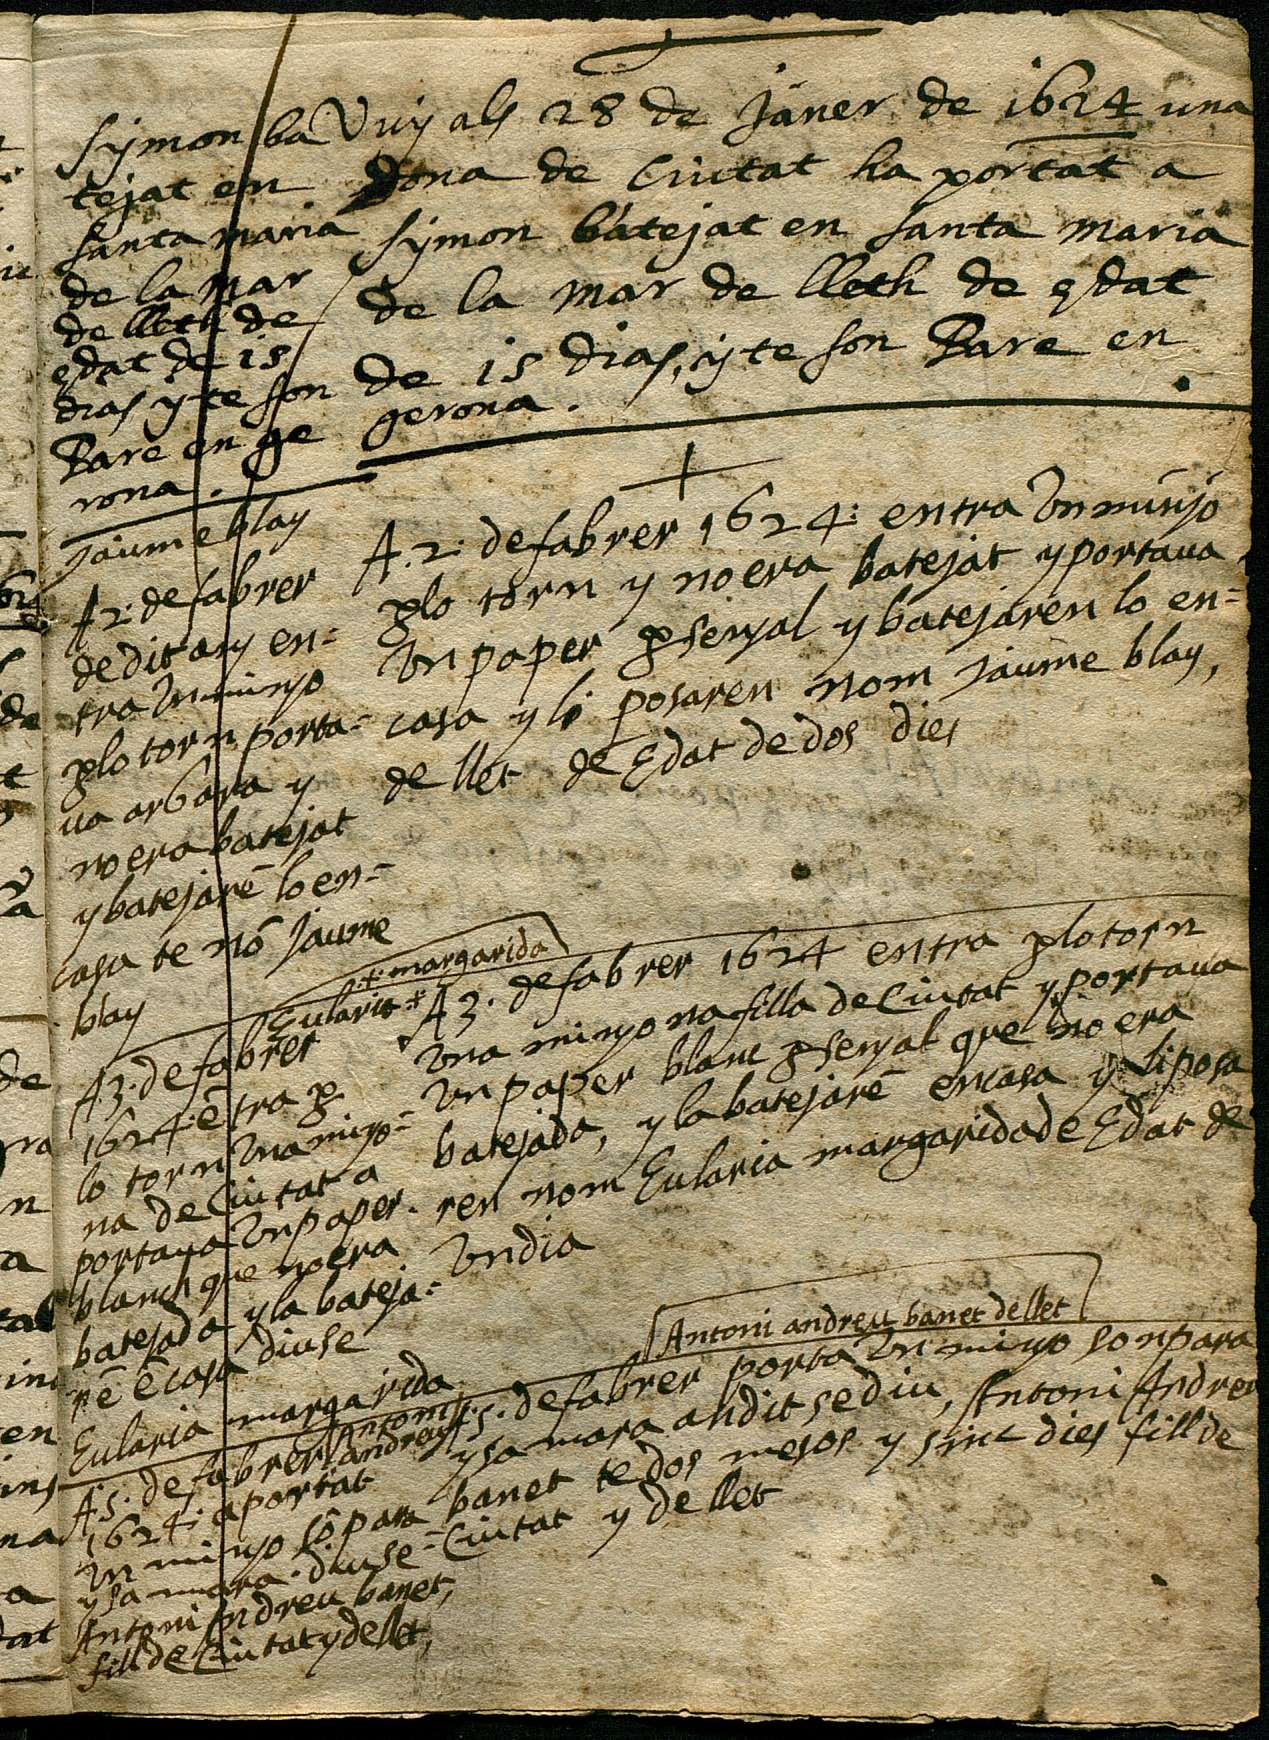 Symon ba
tejat en
santa maria
de la mar
de lleth de
edat de 15
dias y te son
Pare en ge
rona.
Vuy als 28 de Janer de 1624 una
dona de Ciutat ha portat a
Symon batejat en santa maria
de la mar de lleth de edat
de 15 dias, y te son Pare en
gerona.
Jaume blay
A 2: de fabrer
de dit any en=
tra Un minyo
plo torn porta=
va arbara y
no era batejat
y batejarē lo en=
casa te nō Jaume
blay
A. 2: de fabrer 1624: entra Un minyo
plo torn y no era batejat y portava
Un paper p senyal y batejaren lo en=
casa y li posaren nom Jaume blay,
de llet de Edat de dos dies
* margarida
Eularia *
A 3. de fabrer
1624: ētra p
lo torn Una minyo=
na de Ciutat a
portava Un paper
blanch que no era
batejada y la bateja=
rē ē casa diuse
Eularia margarida
A 3. de fabrer 1624 entra plo torn
Una minyona filla de Ciutat y portava
Un paper blanc p senyal que no era
batejada, y la batejarē en casa y li posa
ren nom Eularia margarida de Edat de
Un dia
Antoni andreu banet de llet
Antoni
andreu
A 5. de fabrer
1624: aportat
Un minyo sō para
y sa mara. diuse=
Antoni Andreu banet,
fill de Ciutat y de llet,
A 5. de fabrer porta Un minyo son para
y sa mara an dit se diu, Antoni Andreu
banet te dos mesos y sinc dies fill de
Ciutat y de llet